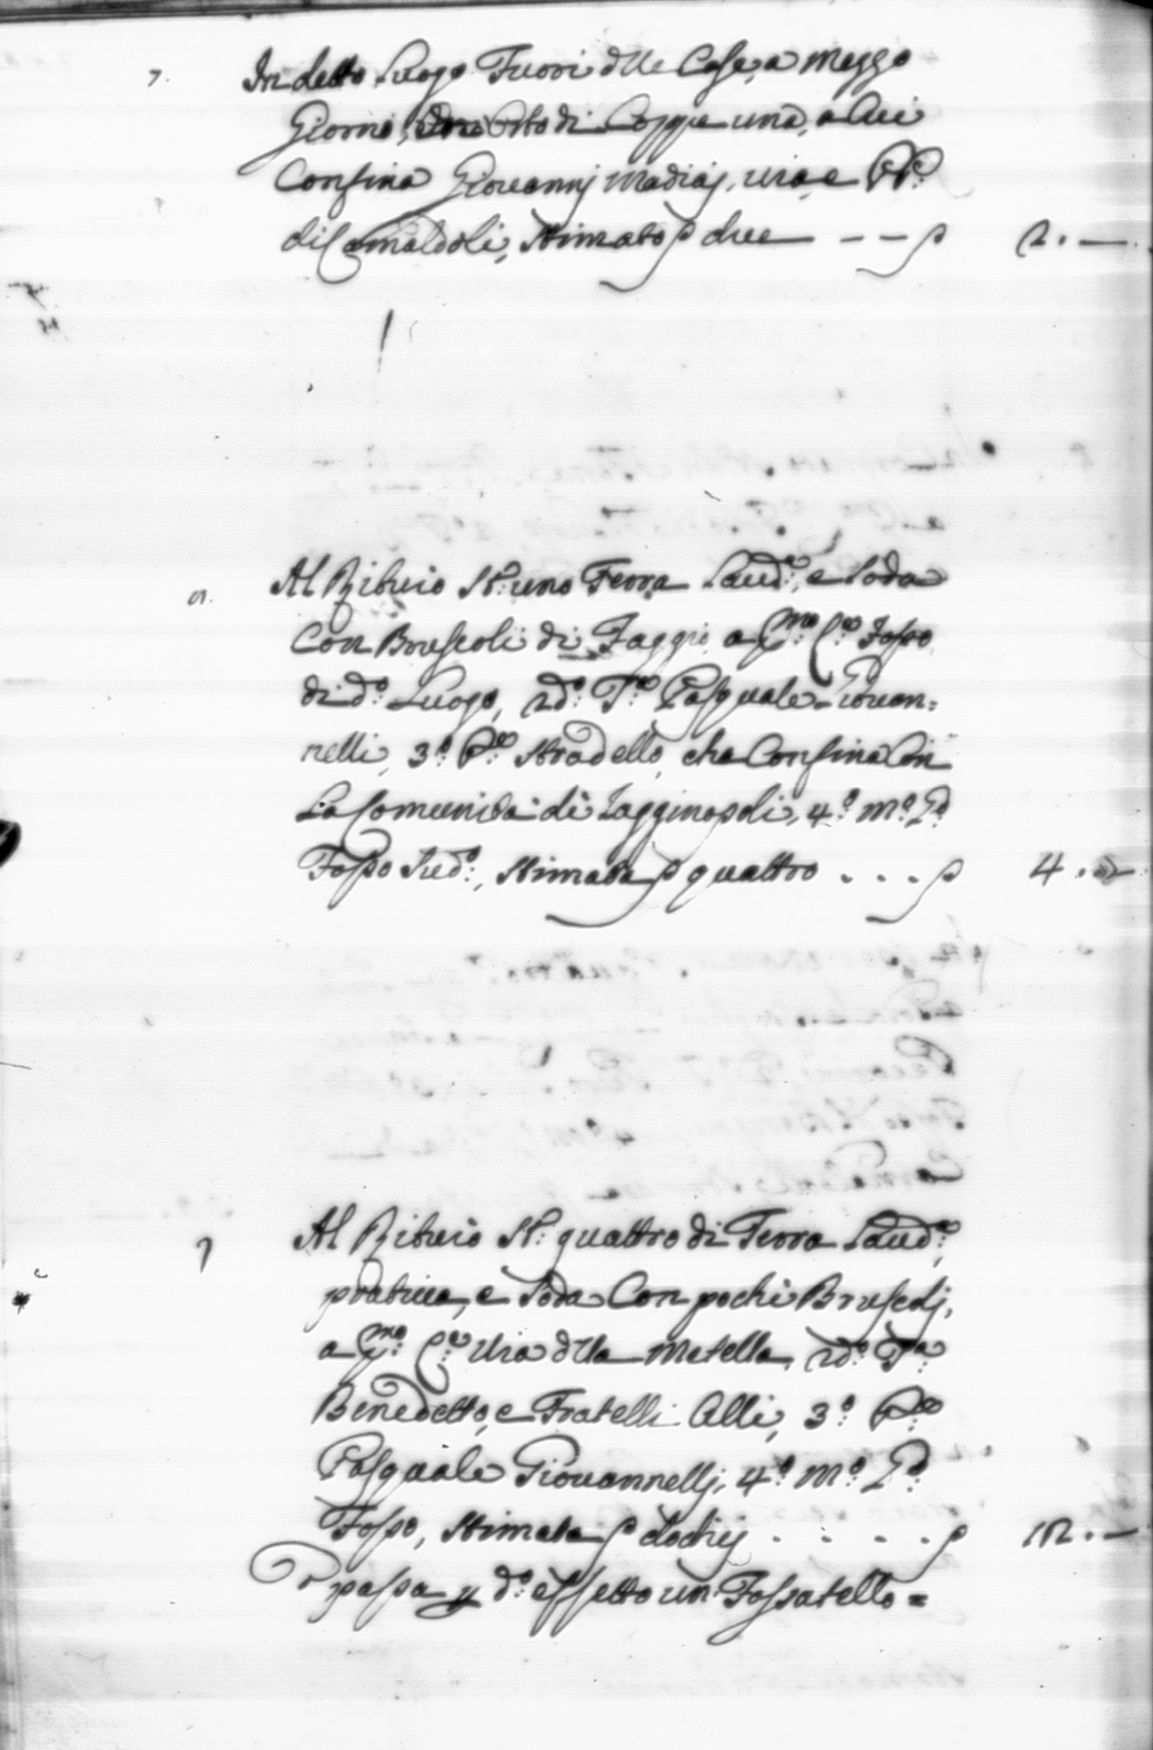 7. In detto Luogo Fuori dlle Case, a mezzo
Giorno, Orto di Coppe una, a Cui
Confina Giovannj Madiaj, via, e PP.
di Camaldoli, Stimato due — — — 2. —
Al Ribuio St: uno Terra Laud:, e Soda
Con Bruscoli di Faggio a pmo Lo Fosso
di do: Luogo, 2do: To Pasquale Giovan=
nelli, 3o: Po Stradello, che Confina Con
La Comunida di Tagginopoli, 4o: Mo: Lo
Fosso Sudo:, Stimata quattro . . . 4. —
Al Ribuio St: quattro di Terra Laud:,
prativa, e Soda Con pochi Bruscolj,
a pmo: La: Via dlla Metella, 2do: Ta:
Benedetto, e Fratelli Alli, 3o: Po:
Pasquale Giovannellj, 4o: Mo: Lo
Fosso, Stimata dodicj . . . . . 12. —
passa do: effetto un Fossatello =